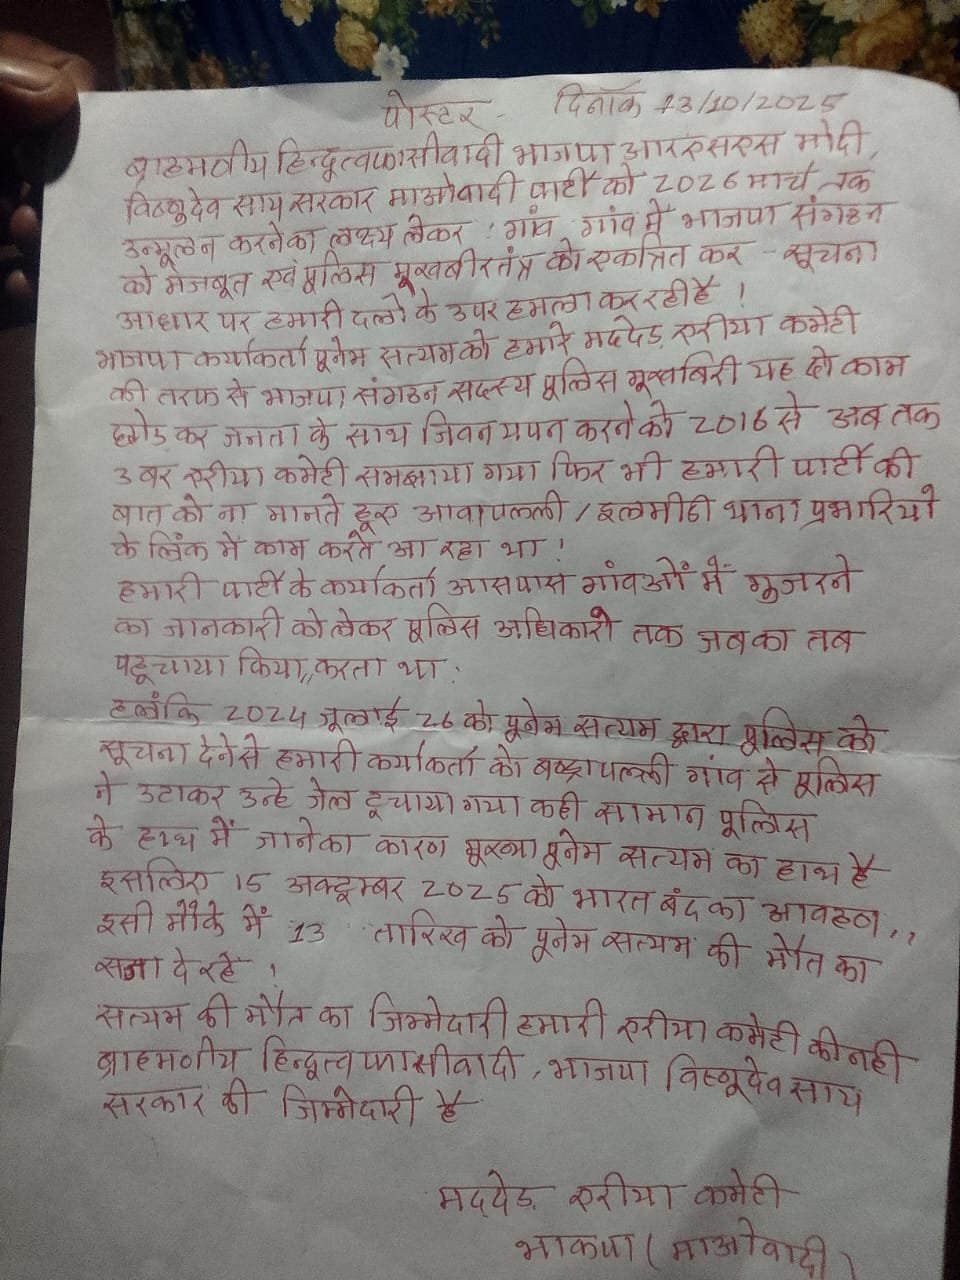 पोस्टर - दिनाँक 13/10/2025
ब्राहमणीय हिन्दुत्वफासीवादी भाजपा आरएसएस मोदी,
विष्णुदेव साय सरकार माओवादी पार्टी को 2026 मार्च तक
उन्मूलन करनेका लक्ष्य लेकर गांव गांव में भाजपा संगठन
को मजबूत एवं पुलिस मूखबीरतंत्र को एकत्रित कर - सूचना
आधार पर हमारी दलो के उपर हमला कर रही है !
भाजपा कर्याकर्ता पूनेम सत्यम को हमारे मददेड़ एरीया कमेटी
की तरफ से भाजपा संगठन सदस्य पूलिस मूखबिरी यह दो काम
छोड़ कर जनता के साथ जिवन यपन करने को 2016 से अब तक
3 बर एरीया कमेटी समझाया गया फिर भी हमारी पार्टी की
बात को ना मानते हूए आवापल्ली / इलमीडी थाना प्रभारियो
के लिंक में काम करते आ रहा था !
हमारी पार्टी के कर्याकर्ता आसपास गांवओं में गुजरने
का जानकारी को लेकर पूलिस अधिकारी तक जबका तब
पहूचाया किया,, करता था :
हलंकि 2024 जूलाई 26 को पूनेम सत्यम द्वारा पूलिस को
सूचना देनेसे हमारी कर्याकर्ता को पल्ली गांव से पूलिस
ने उटाकर उन्हे जेल दूचाया गया कही सामान पूलिस
के हाथ में जानेका कारण मूख्या पूनेम सत्यम का हाथ है
इसलिए 15 अक्टूम्बर 2025 को भारत बंद का आवहण,,
इसी मौके में 13 तारिख को पूनेम सत्यम की मौत का
सजा दे रहे !
सत्यम की मौत का जिम्मेदारी हमारी एरीया कमेटी की नही
ब्राहमणीय हिन्दूत्व फासीवादी, भाजपा विष्णूदेव साय
सरकार की जिम्मेदारी है
मददेड़ एरीया कमेटी
भाकपा (माओवादी)